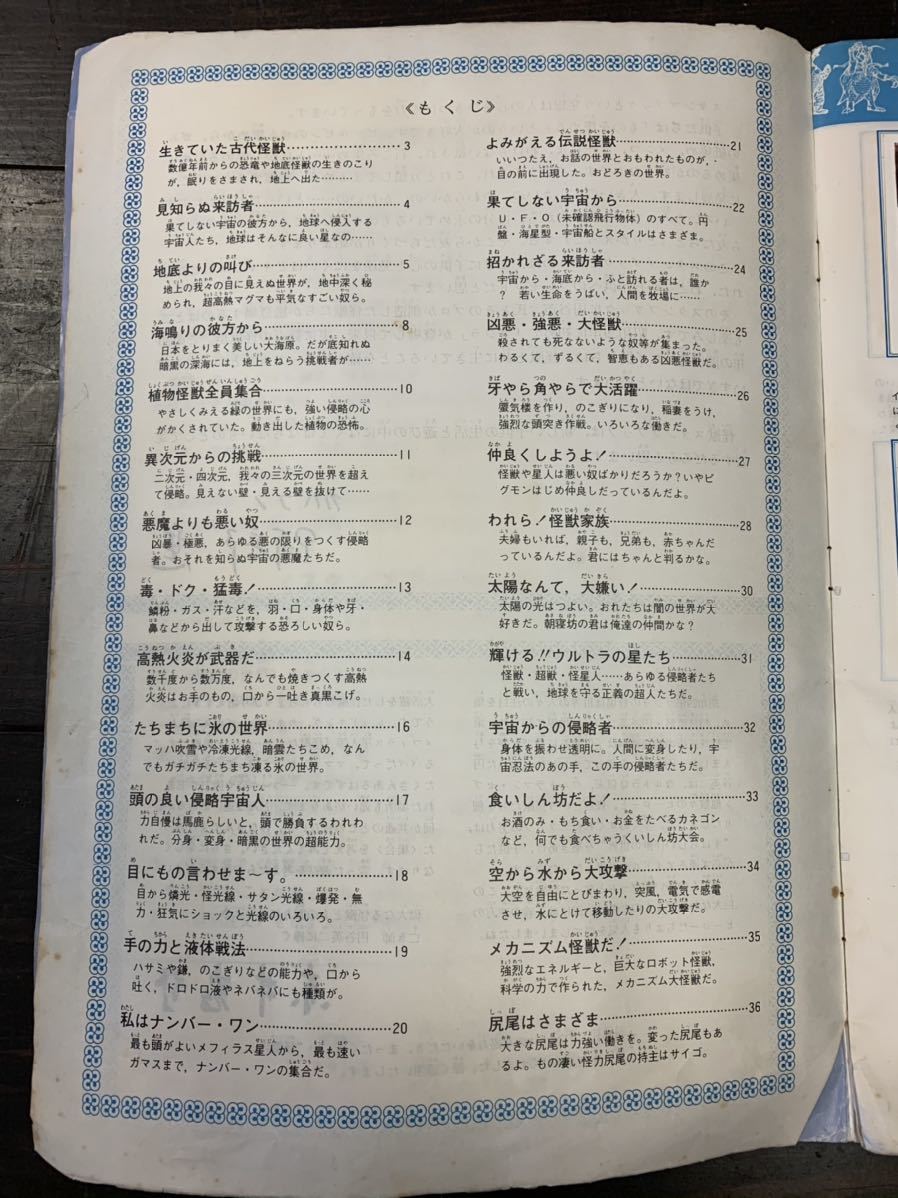 《もくじ》
生きていた古代怪獣………3
数億年前からの恐竜や地底怪獣の生きのこり
が，眠りをさまされ，地上へ出た………
見知らぬ来訪者………4
果てしない宇宙の彼方から，地球へ侵入する
宇宙人たち，地球はそんなに良い星なの……
地底よりの叫び………5
地上の我々の目に見えぬ世界が，地中深く秘
められ，超高熱マグマも平気なすごい奴ら。
海鳴りの彼方から………8
日本をとりまく美しい大海原。だが底知れぬ
暗黒の深海には，地上をねらう挑戦者が……
植物怪獣全員集合………10
やさしくみえる緑の世界にも，強い侵略の心
がかくされていた。動き出した植物の恐怖。
異次元からの挑戦………11
二次元・四次元，我々の三次元の世界を超え
て侵略。見えない壁・見える壁を抜けて……
悪魔よりも悪い奴………12
凶暴・極悪，あらゆる悪の限りをつくす侵略
者。おそれを知らぬ宇宙の悪魔たちだ。
毒・ドク・猛毒！………13
鱗粉・ガス・汗などを，羽・口・身体や牙・
鼻などから出して攻撃する恐ろしい奴ら。
高熱火炎が武器だ………14
数千度から数万度，なんでも焼きつくす高熱
火炎はお手のもの，口から一吐き真黒こげ。
たちまちに氷の世界………16
マッハ吹雪や冷凍光線，暗雲たちこめ，なん
でもガチガチたちまち凍る氷の世界。
頭の良い侵略宇宙人………17
力自慢は馬鹿らしいと，頭で勝負するわれわ
れだ。分身・変身・暗黒の世界の超能力。
目にもの言わせま〜す。………18
目から燐光・怪光線・サタン光線・爆発・無
力・狂気にショックと光線のいろいろ。
手の力と液体戦法………19
ハサミや鎌，のこぎりなどの能力や，口から
吐く，ドロドロ液やネバネバにも種類が。
私はナンバー・ワン………20
最も頭がよいメフィラス星人から，最も速い
ガマスまで，ナンバー・ワンの集合だ。
よみがえる伝説怪獣………21
いいつたえ，お話の世界とおもわれたものが，
目の前に出現した。おどろきの世界。
果てしない宇宙から………22
U・F・O（未確認飛行物体）のすべて。円
盤・海星型・宇宙船とスタイルはさまざま。
招かれざる来訪者………24
宇宙から・海底から・ふと訪れる者は，誰か
？ 若い生命をうばい，人間を牧場に……
凶悪・強悪・大怪獣………25
殺されても死なないような奴等が集まった。
わるくて，ずるくて，智恵もある凶悪怪獣だ。
牙やら角やらで大活躍………26
蜃気楼を作り，のこぎりになり，稲妻をうけ，
強烈な頭突き作戦。いろいろな働きだ。
仲良くしようよ！………27
怪獣や星人は悪い奴ばかりだろうか？いやピ
グモンはじめ仲良しだっているんだよ。
われら！怪獣家族………28
夫婦もいれば，親子も，兄弟も，赤ちゃんだ
っているんだよ。君にはちゃんと判るかな。
太陽なんて，大嫌い！………30
太陽の光はつよい。おれたちは闇の世界が大
好きだ。朝寝坊の君は俺達の仲間かな？
輝ける!!ウルトラの星たち………31
怪獣・超獣・怪星人……あらゆる侵略者たち
と戦い，地球を守る正義の超人たちだ。
宇宙からの侵略者………32
身体を振わせ透明に。人間に変身したり，宇
宙忍法のあの手，この手の侵略者たちだ。
食いしん坊だよ！………33
お酒のみ・もち食い・お金をたべるカネゴン
など，何でも食べちゃうくいしん坊大会。
空から水から大攻撃………34
大空を自由にとびまわり，突風，電気で感電
させ，水にとけて移動したりの大攻撃だ。
メカニズム怪獣だ！………35
強烈なエネルギーと，巨大なロボット怪獣，
科学の力で作られた，メカニズム大怪獣だ。
尻尾はさまざま………36
大きな尻尾は力強い働きを。変った尻尾もあ
るよ。もの凄い怪力尻尾の持主はサイゴ。